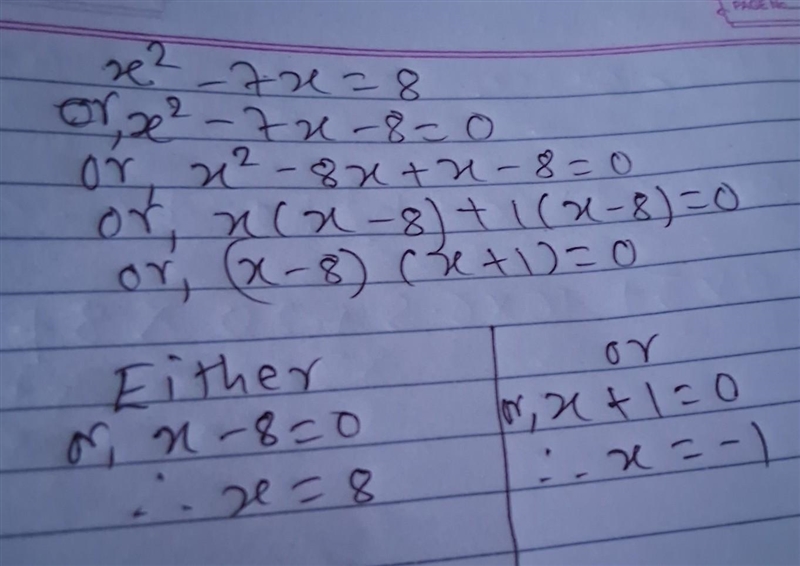 PAGE No.
x² - 7x = 8
or, x² - 7x - 8 = 0
or, x² - 8x + x - 8 = 0
or, x(x - 8) + 1(x - 8) = 0
or, (x - 8) (x + 1) = 0
Either
or, x - 8 = 0
∴ x = 8
or
or, x + 1 = 0
∴ x = -1